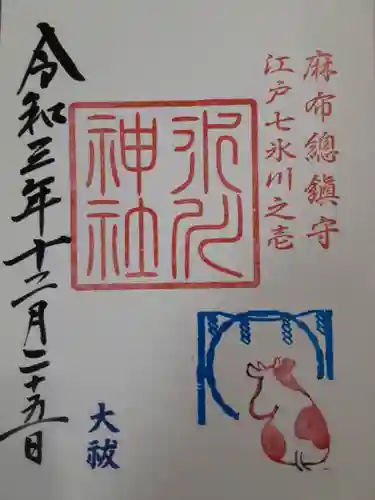 麻布總鎮守
江戸七氷川之壱
氷川
神社
令和三年十二月二十五日
大祓